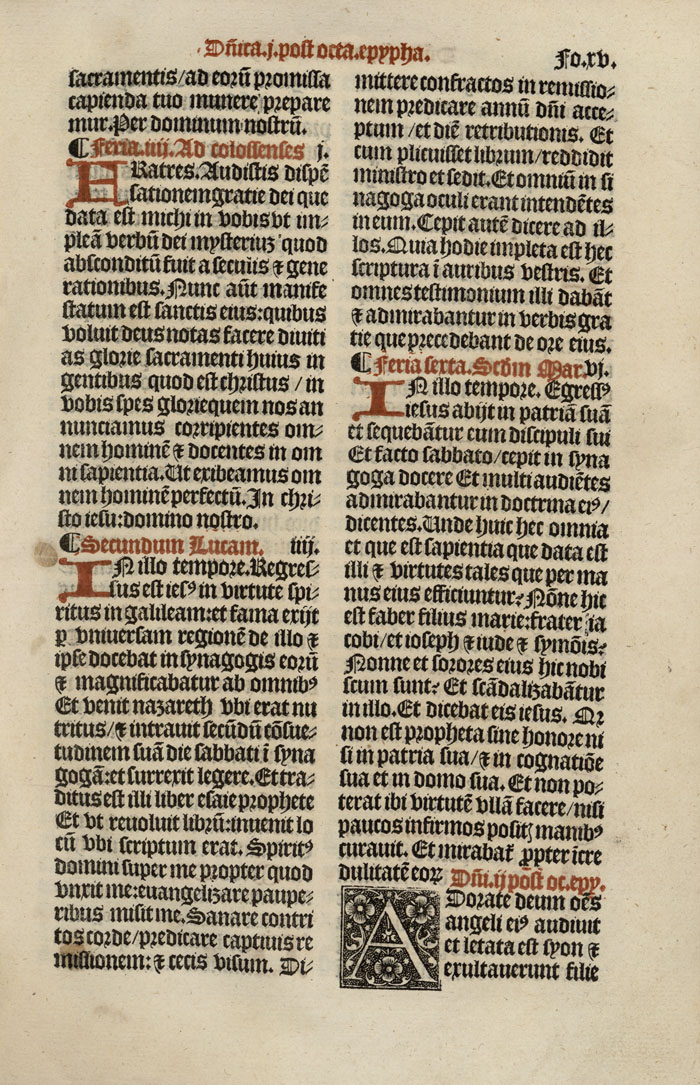 Dñica.j.post octa.epypha.
Fo.xv.
sacramentis/ad eorũ promissa
capienda tuo munere prepare
mur.Per dominum nostrũ.
¶ Feria.iiij.Ad colossenses j.
FRatres.Audistis dispẽ
sationem gratie dei que
data est michi in vobis vt im⸗
pleã verbũ dei mysteriuʒ quod
absconditũ fuit a seculis ⁊ gene
rationibus.Nunc aũt manife
statum est sanctis eius:quibus
voluit deus notas facere diuiti
as glorie sacramenti huius in
gentibus quod est christus / in
vobis spes glorie quem nos an
nunciamus corripientes om⸗
nem hominẽ ⁊ docentes in om
ni sapientia.Ut exibeamus om
nem hominẽ perfectũ.In chri⸗
sto iesu:domino nostro.
¶ Secundum Lucam. iiij.
IN illo tempore.Regres⸗
sus est iesꝰ in virtute spi⸗
ritus in galileam:et fama exijt
ꝑ vniuersam regionẽ de illo ⁊
ipse docebat in synagogis eorũ
⁊ magnificabatur ab omnibꝰ
Et venit nazareth vbi erat nu
tritus/⁊ intrauit secũdũ cõsue⸗
tudinem suã die sabbati ĩ syna
gogã:et surrexit legere.Et tra⸗
ditus est illi liber esaie prophete
Et vt reuoluit librũ:inuenit lo
cũ vbi scriptum erat. Spiritꝰ
domini super me propter quod
vnxit me:euangelizare paupe⸗
ribus misit me.Sanare contri
tos corde/predicare captiuis re
missionem:⁊ cecis visum. Di⸗
mittere confractos in remissio⸗
nem predicare annũ dñi acce⸗
ptum /et diẽ retributionis. Et
cum plicuisset librum/reddidit
ministro et sedit.Et omniũ in si
nagoga oculi erant intendẽtes
in eum.Cepit autẽ dicere ad il⸗
los.Quia hodie impleta est hec
scriptura ĩ auribus vestris. Et
omnes testimonium illi dabãt
⁊ admirabantur in verbis gra
tie que precedebant de ore eius.
¶ Feria sexta. Scðm Mar.vj.
IN illo tempore. Egressꝰ
iesus abijt in patriã suã
et sequebãtur eum discipuli sui
Et facto sabbato/cepit in syna
goga docere Et multi audiẽtes
admirabantur in doctrina eiꝰ/
dicentes.Unde huic hec omnia
et que est sapientia que data est
illi ⁊ virtutes tales que per ma
nus eius efficiuntur? Nõne hic
est faber filius marie:frater ia
cobi/et ioseph ⁊ iude ⁊ symõis?
Nonne et sorores eius hic nobi
scum sunt? Et scãdalizabãtur
in illo.Et dicebat eis iesus. Qr
non est propheta sine honore ni
si in patria sua/⁊ in cognatiõe
sua et in domo sua. Et non po⸗
terat ibi virtutẽ vllã facere/nisi
paucos infirmos positꝭ manibꝰ
curauit. Et mirabať ꝓpter ĩcre
dulitatẽ eoꝝ
Dñi.ij post oc.epy.
ADorate deum oẽs
angeli eiꝰ audiuit
et letata est syon ⁊
exultauerunt filie